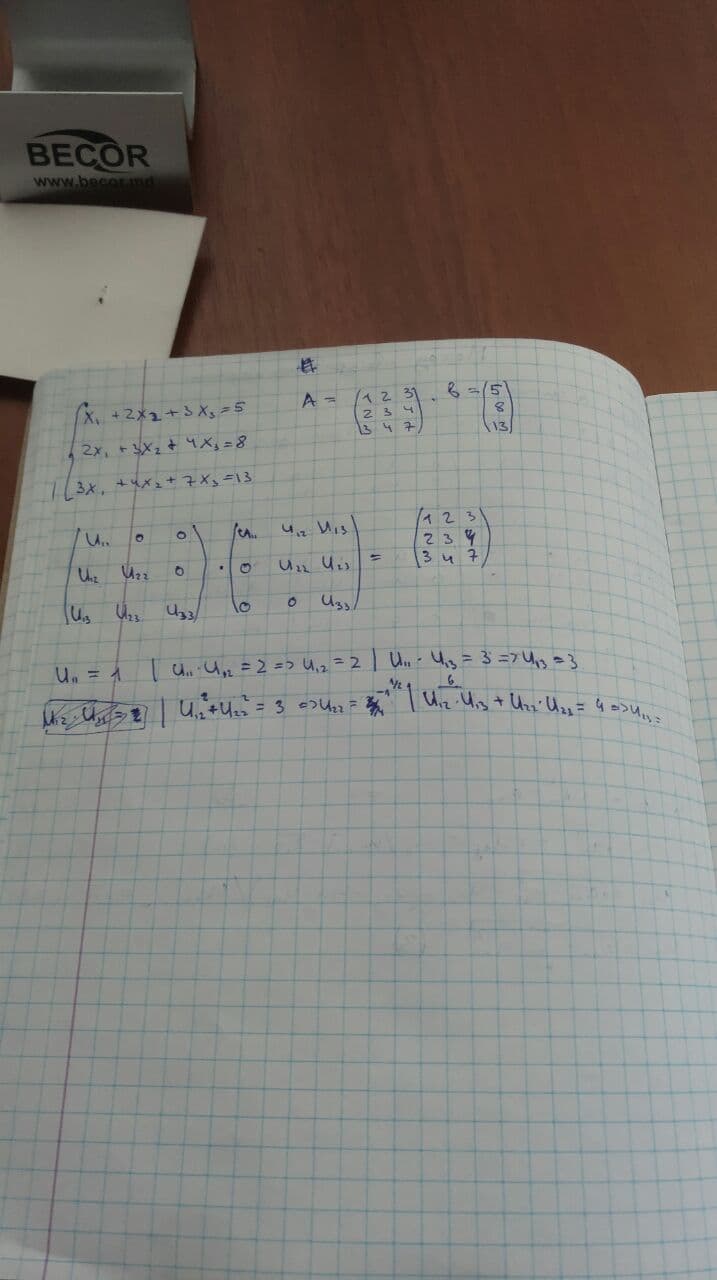 BECOR
www.becor.md
x₁ + 2x₂ + 3x₃ = 5
2x₁ + 3x₂ + 4x₃ = 8
3x₁ + 4x₂ + 7x₃ = 13
A = (1 2 3
2 3 4
3 4 7) . b = (5
8
13)
(u₁₁ 0 0
u₁₂ u₂₂ 0
u₁₃ u₂₃ u₃₃) · (u₁₁ u₁₂ u₁₃
0 u₂₂ u₂₃
0 0 u₃₃) = (1 2 3
2 3 4
3 4 7)
u₁₁ = 1 | u₁₁ · u₁₂ = 2 => u₁₂ = 2 | u₁₁ · u₁₃ = 3 => u₁₃ = 3
| u₁₂² + u₂₂² = 3 => u₂₂ = -1^1/2 | u₁₂ · u₁₃ (6) + u₂₂ · u₂₃ = 4 => u₂₃ =